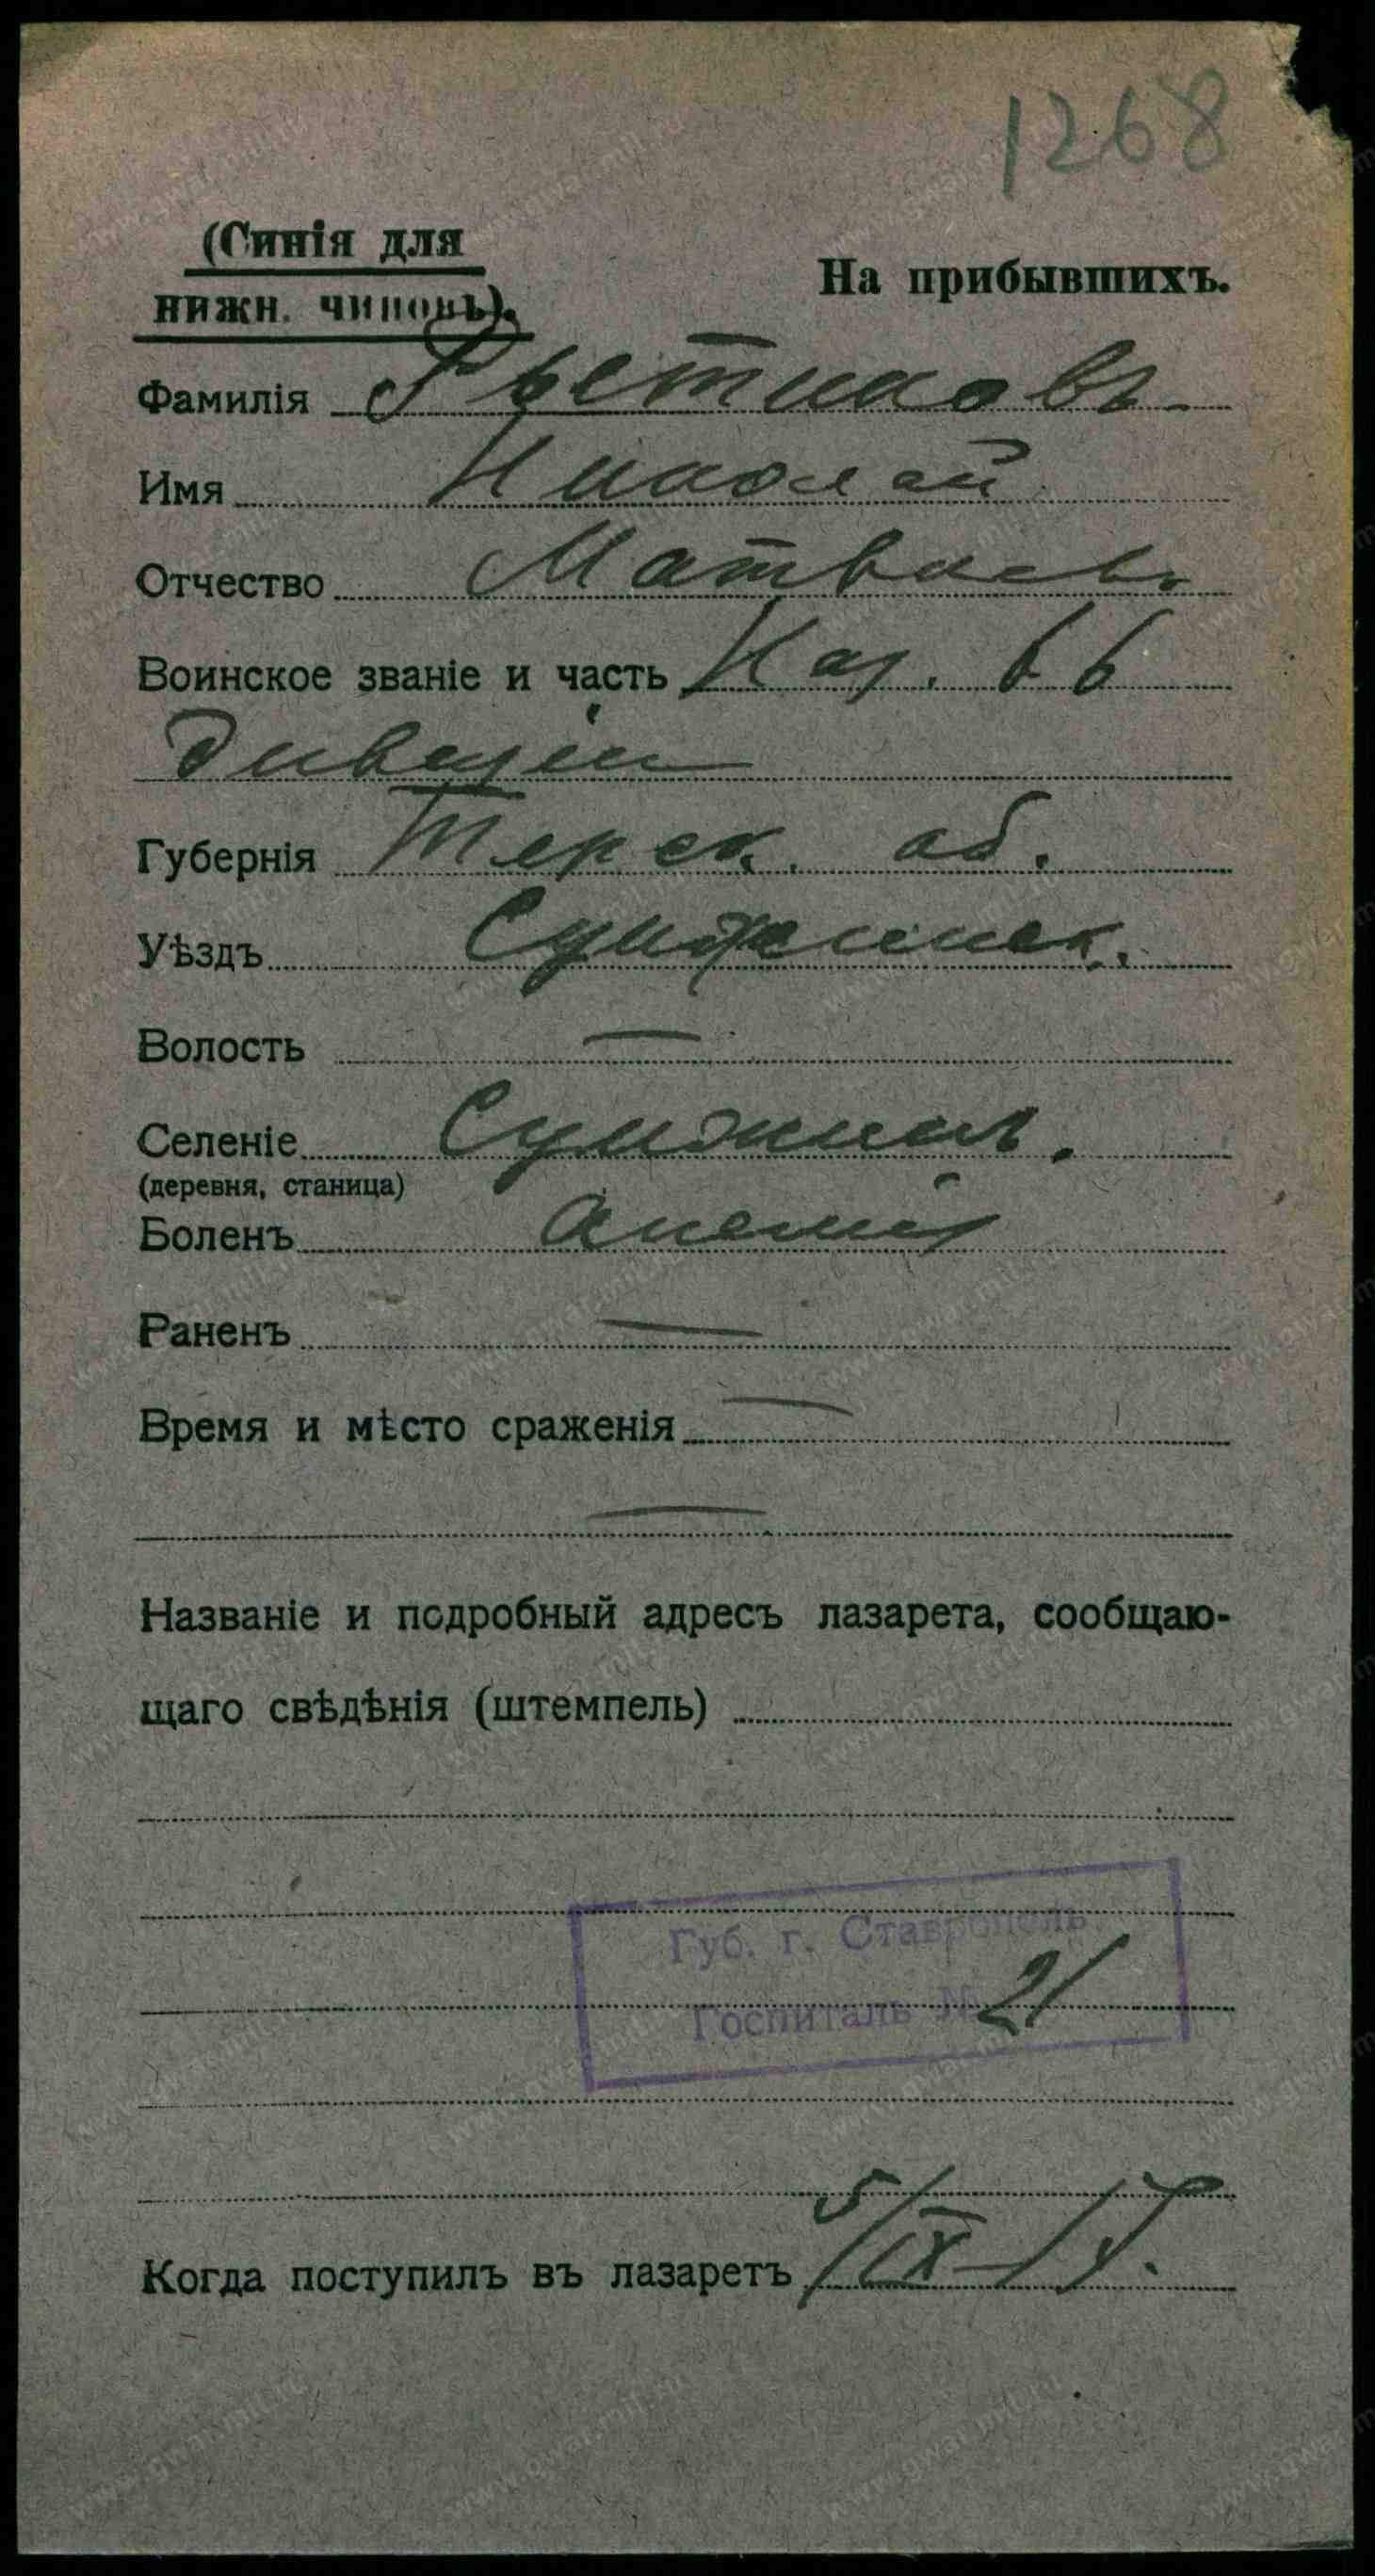 1268
(Синія для
нижн. чиновъ).
На прибывшихъ.
Фамилія Рѣтиковъ
Имя Николай
Отчество Матвѣевъ
Воинское званіе и часть Каз. 66
дивизіи
Губернія Терск. об.
Уѣздъ Сунженск.
Волость —
Селеніе Сунженск.
(деревня, станица)
Боленъ Анемія
Раненъ —
Время и мѣсто сраженія —
—
Названіе и подробный адресъ лазарета, сообщаю-
щаго свѣдѣнія (штемпель)
Губ. г. Ставрополь.
Госпиталь № 21
Когда поступилъ въ лазаретъ 5/IX-17.